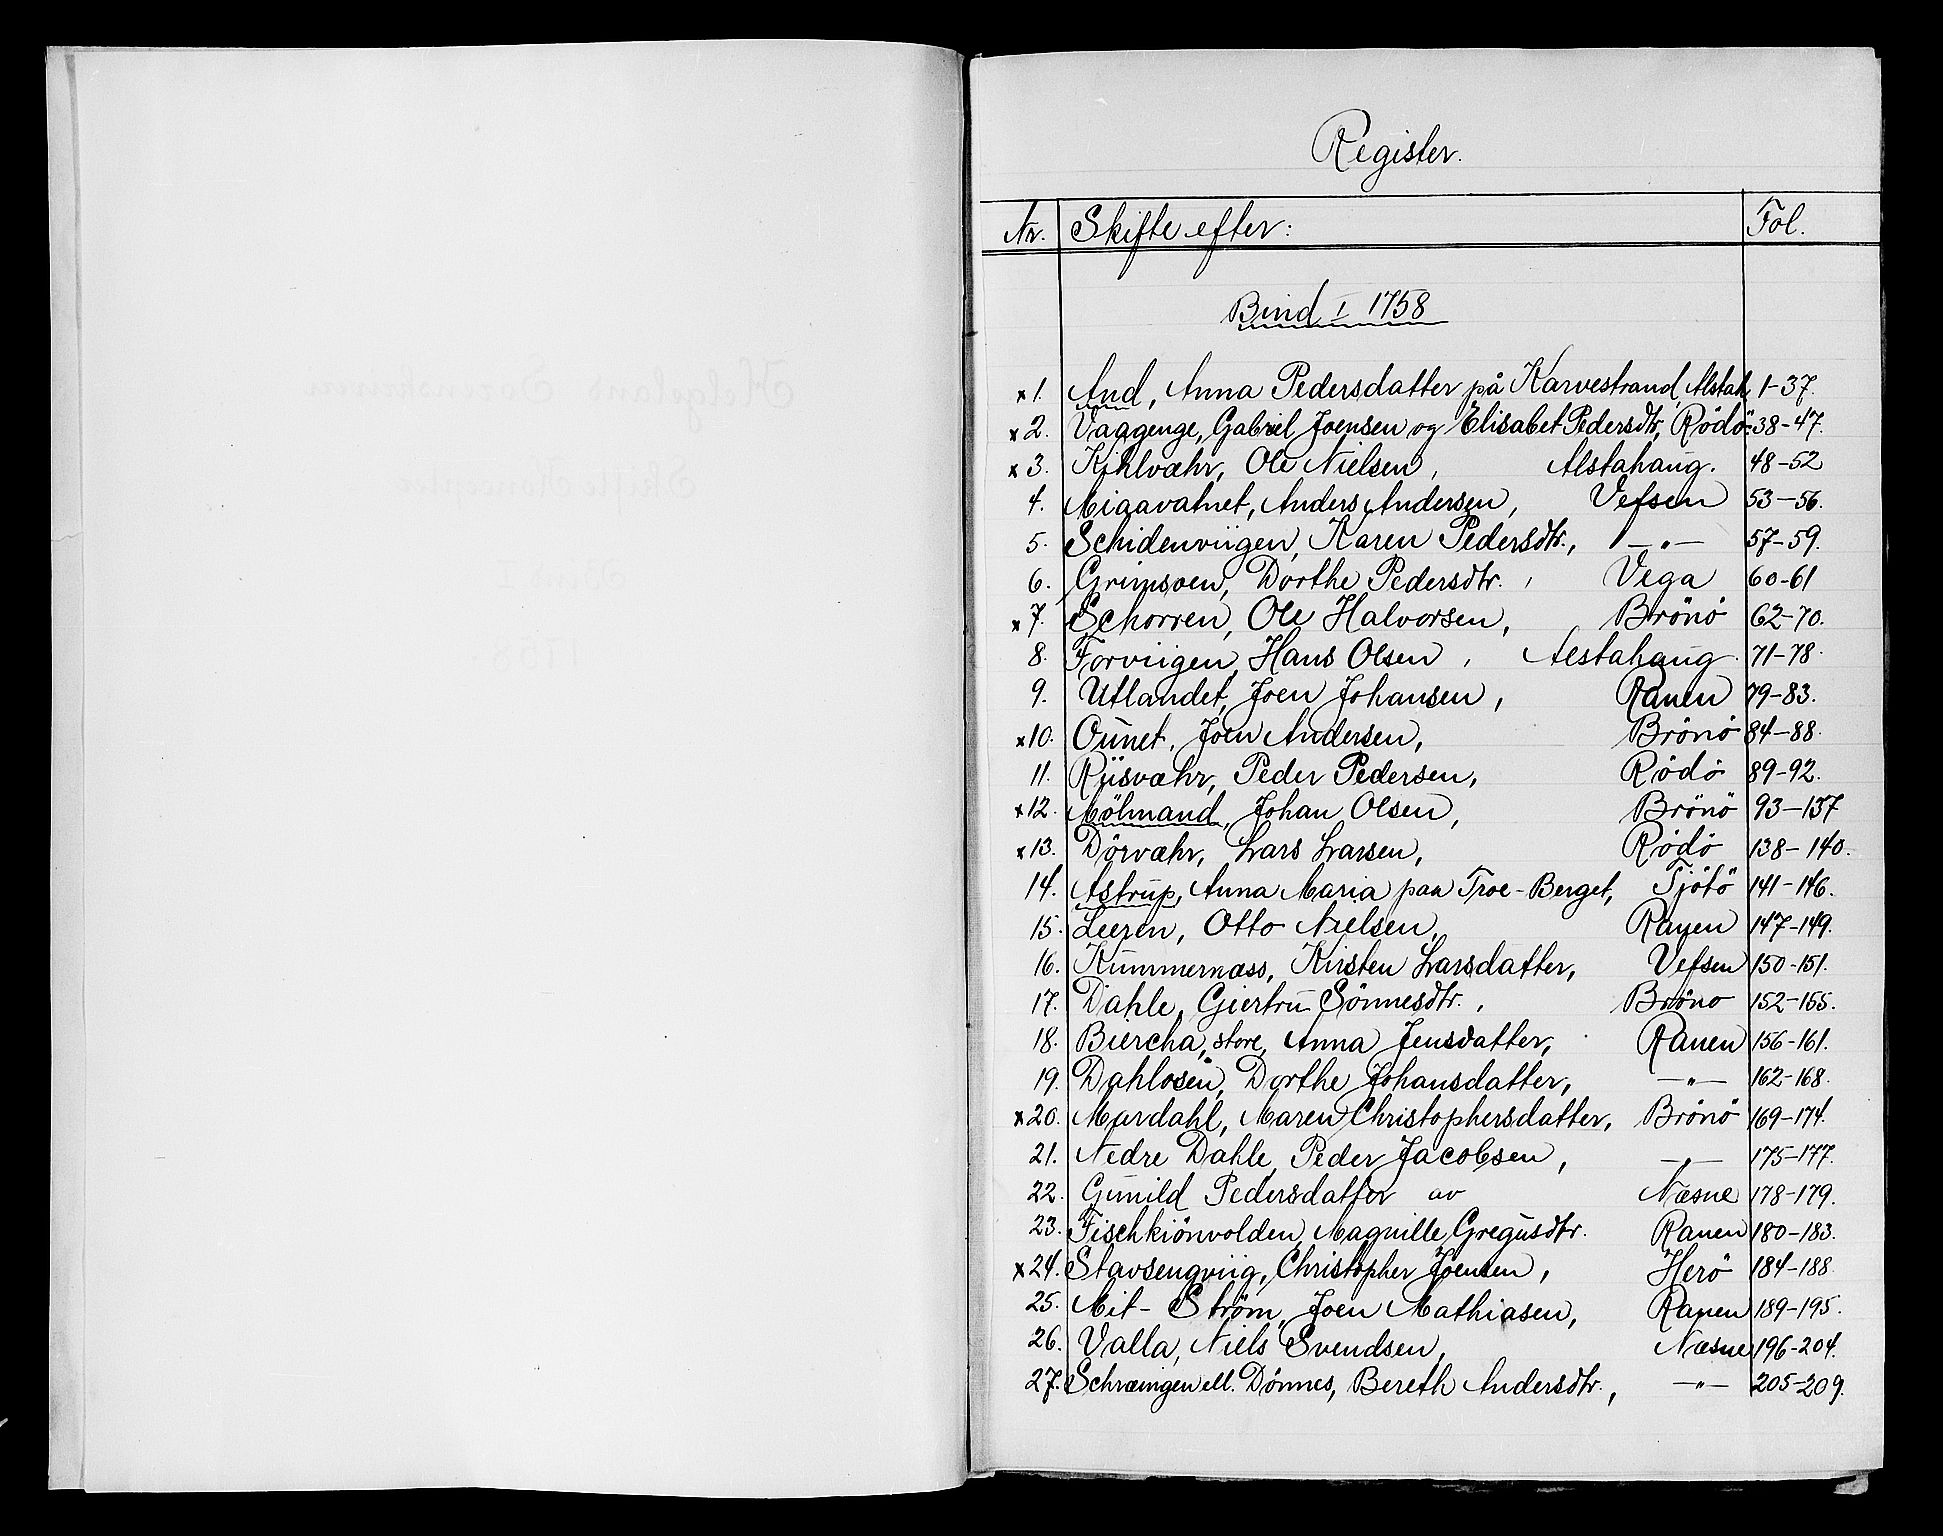 Register.
Nr. Skifte efter: Fol.
Bind I 1758
x 1. And, Anna Pedersdatter på Karvestrand, Alstah. 1-37.
x 2. Vaagenge, Gabriel Joensen og Elisabet Pedersdtr, Rödö 38-47.
x 3. Kihlvæhr, Ole Nielsen, Alstahaug. 48-52
4. Migavatnet, Anders Andersen, Vefsen 53-56.
5. Schidenviigen, Karen Pedersdtr., —"— 57-59.
6. Grimsoen, Dorthe Pedersdtr. , Vega 60-61
x 7. Schorren, Ole Halvorsen, Brönö 62-70.
8. Forviigen, Hans Olsen , Alstahaug 71-78.
9. Utlandet, Joen Johansen, Ranen 79-83.
x 10. Ounet, Joen Andersen, Brönö 84-88.
11. Riisvæhr, Peder Pedersen, Rödö 89-92.
x 12. Mölmand, Johan Olsen, Brönö 93-137
x 13. Dörvæhr, Lars Larsen, Rödö 138-140.
14. Astrup, Anna Maria paa Troe-Berget, Tjötö 141-146.
15. Leeren, Otto Nielsen, Ranen 147-149.
16. Kummernæss, Kirsten Larsdatter, Vefsen 150-151.
17. Dahle, Giertru Sönnesdtr. , Brönö 152-155.
18. Biercha, store, Anna Jensdatter, Ranen 156-161.
19. Dahlosen, Dorthe Johansdatter, —"— 162-168.
x 20. Mardahl, Maren Christophersdatter, Brönö 169-174.
21. Nedre Dahle, Peder Jacobsen, —"— 175-177.
22. Gunild Pedersdatter av Næsne 178-179.
23. Fischkiönvolden, Magnille Gregusdtr. Ranen 180-183.
x 24. Stavsengviig, Christopher Joensen, Herö 184-188
25. Mit-Ström, Joen Mathiasen, Ranen 189-195.
26. Valla, Niels Svendsen, Næsne 196-204.
27. Schræingen ell. Dönnes, Bereth Andersdtr., —"— 205-209.